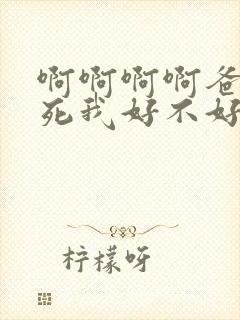 啊啊啊啊爸
死我好不好
柠檬呀